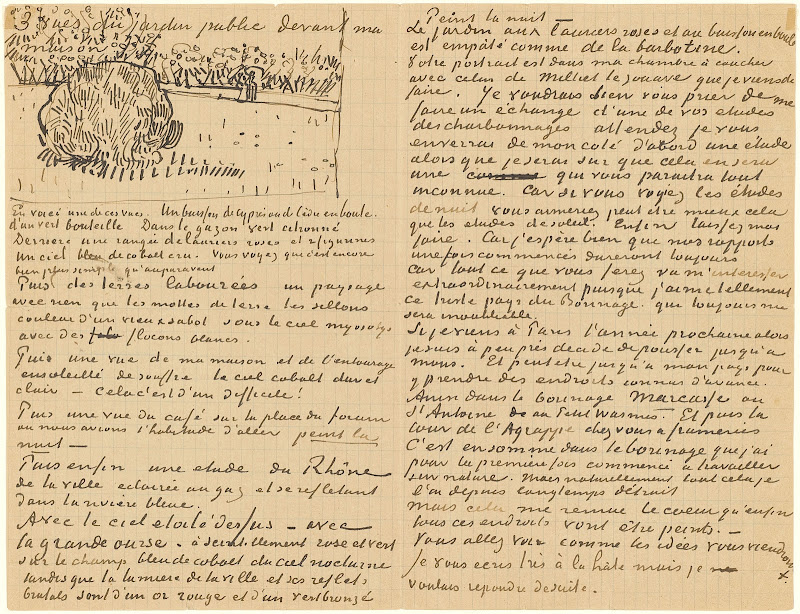 3 vues du jardin public devant ma
maison
En voici une de ces vues. Un buisson de cyprès ou de cèdre en boule
d'un vert bouteille Dans le gazon vert citronné
Derrière une rangée de lauriers roses et 2 figurines
un ciel bleu de cobalt cru. Vous voyez que c'est encore
bien plus simple qu'auparavant
Puis des terres labourées un paysage
avec rien que les mottes de terre les sillons
couleur d'un vieux sabot sous le ciel myosotys
avec des flocons blancs.
Puis une vue de ma maison et de l'entourage
ensoleillé de souffre le ciel cobalt dur et
clair — Cela c'est d'un difficile!
Puis une vue du café sur la place du forum
où nous avions l'habitude d'aller peint la
nuit —
Puis enfin une etude du Rhône
de la ville eclairée au gaz et se refletant
dans la rivière bleue.
Avec le ciel etoilé dessus — avec
la grande ourse — à scintillement rose et vert
sur le champ bleu de cobalt du ciel nocturne
tandis que la lumière de la ville et ses reflets
brutals sont d'un or rouge et d'un vert bronzé
Peint la nuit —
Le jardin aux lauriers roses et au buisson en boule
est empâté comme de la barbotine.
Votre portrait est dans ma chambre à coucher
avec celui de Milliet le zouave que je viens de
faire. Je voudrais bien vous prier de me
faire un échange d'une de vos etudes
des charbonnages attendez je vous
enverrai de mon coté d'abord une étude
alors que je serai sur que cela en sera
une qui vous paraitra tout
inconnue. Car si vous voyez les études
de nuit vous aimeriez peut etre mieux cela
que les etudes de soleil. Enfin laissez moi
faire. Car j'espère bien que nos rapports
une fois commencés dureront toujours
Car tout ce que vous ferez va m'interesser
extraordinairement puisque j'aime tellement
ce triste pays du Borinage. qui toujours me
sera inoubliable.
Si je viens à Paris l'année prochaine alors
je suis à peu près décidé de pousser jusqu'à
Mons. Et peut etre jusqu'à mon pays pour
y prendre des endroits connus d'avance.
Ainsi dans le borinage Marcasse ou
St Antoine au Petit Wasmes. Et puis la
cour de l'Agrappe chez vous à frameries
C'est en somme dans le borinage que j'ai
pour la première fois commencé à travailler
sur nature. mais naturellement tout cela je
l'ai depuis longtemps détruit
Mais cela me remue le coeur qu'enfin
tous ces endroits vont être peints. —
Vous allez voir comme les idées vous viendront
Je vous ecris très à la hâte mais je
voulais repondre de suite.